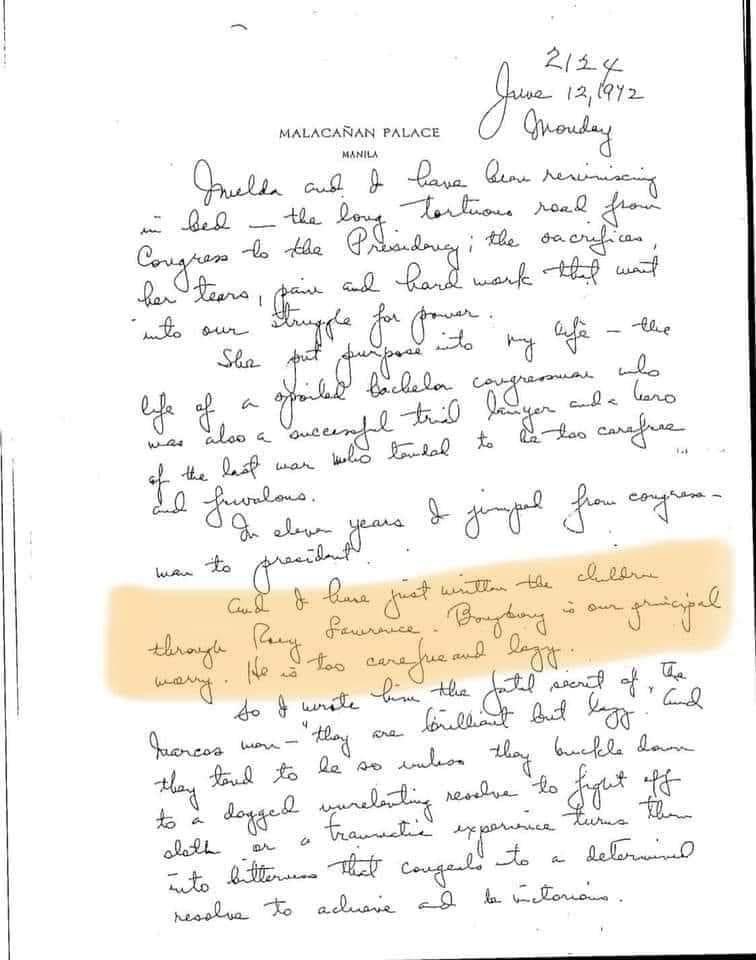 2124
June 12, 1972
MALACAÑAN PALACE
Monday
MANILA
Imelda and I have been reminiscing
in bed – the long tortuous road from
Congress to the Presidency; the sacrifices,
her tears, pain and hard work that went
into our struggle for power.
She put purpose into my life – the
life of a spoiled bachelor congressman who
was also a successful trial lawyer and a hero
of the last war who tended to be too carefree
and frivolous.
In eleven years I jumped from congress–
man to president.
And I have just written the children
through Rory Lawrence. Bongbong is our principal
worry. He is too carefree and lazy.
So I wrote him the fatal secret of the
Marcos men – "they are brilliant but lazy. And
they tend to be so unless they buckle down
to a dogged unrelenting resolve to fight off
sloth or a traumatic experience turns them
into bitterness that congeals to a determined
resolve to achieve and be victorious.